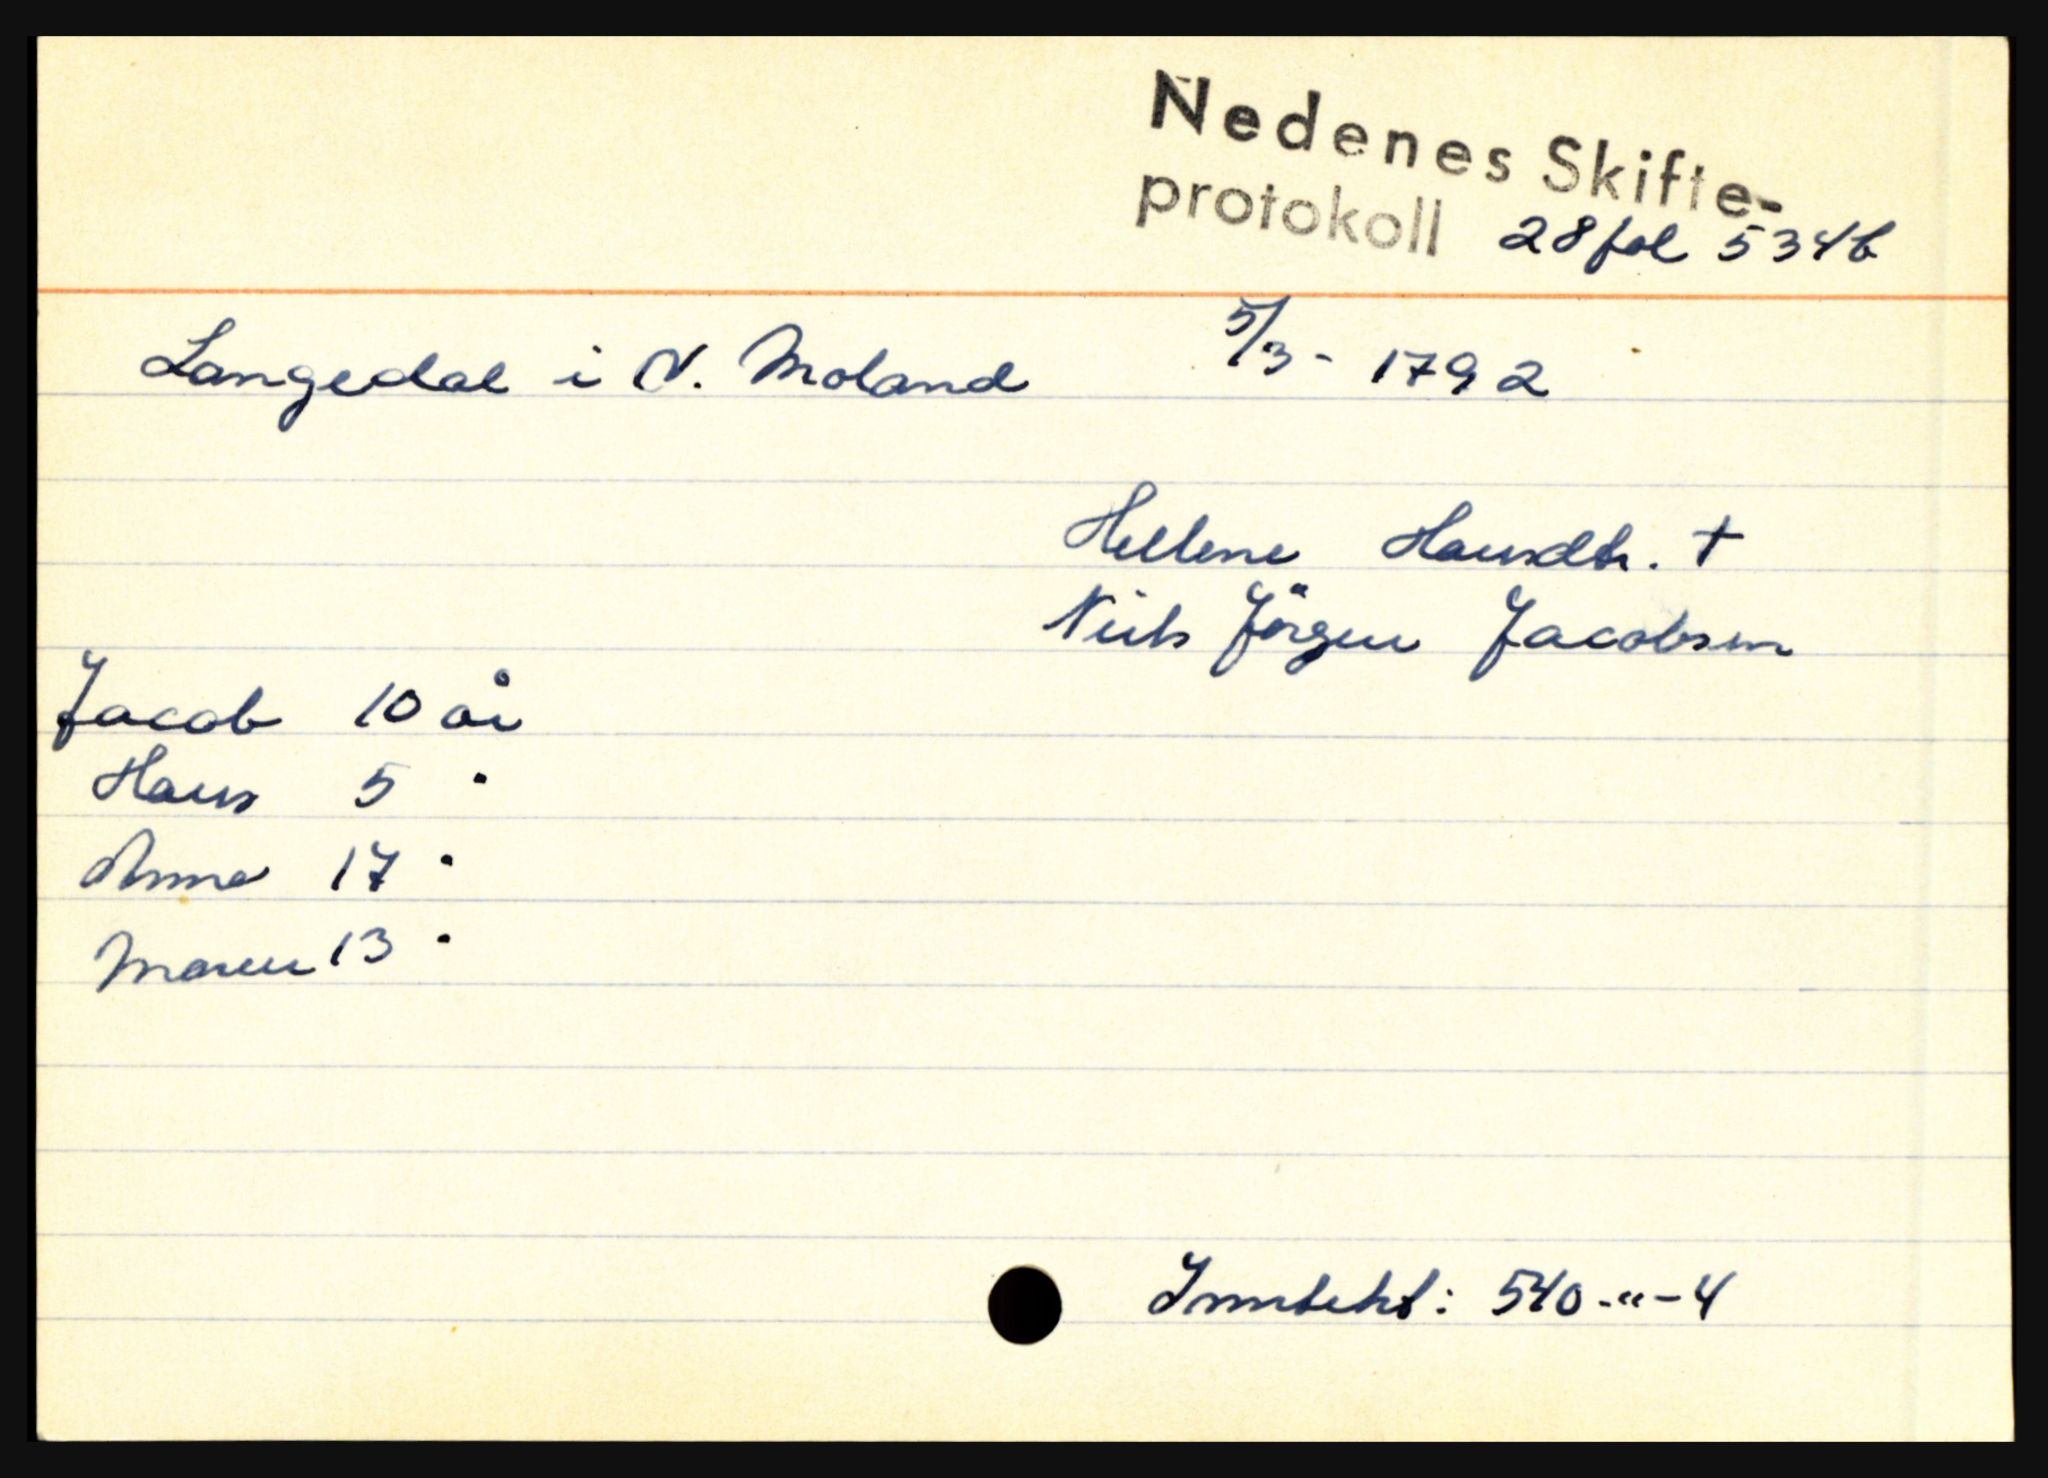 Nedenes Skifte-
protokoll 28 fol 534b
Langedal i N. Moland 5/3 - 1792
Hellene Hansdtr. †
Niels Jörgen Jacobsen
Jacob 10 år
Hans 5 "
Anne 17 "
Maren 13 "
Inntekt: 540-"-4